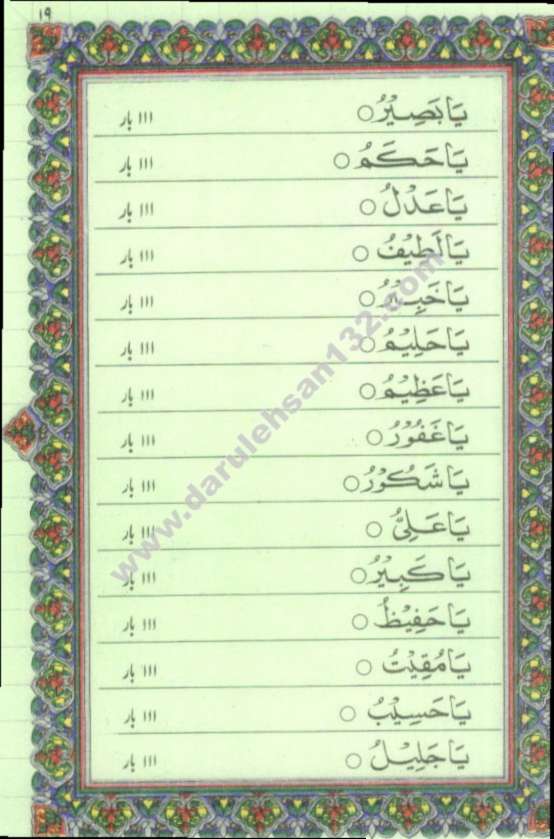 ١٩
يَا بَصِيْرُ ○ ١١١ بار
يَا حَكَمُ ○ ١١١ بار
يَا عَدْلُ ○ ١١١ بار
يَا لَطِيْفُ ○ ١١١ بار
يَا خَبِيْرُ ○ ١١١ بار
يَا حَلِيْمُ ○ ١١١ بار
يَا عَظِيْمُ ○ ١١١ بار
يَا غَفُوْرُ ○ ١١١ بار
يَا شَكُوْرُ ○ ١١١ بار
يَا عَلِىُّ ○ ١١١ بار
يَا كَبِيْرُ ○ ١١١ بار
يَا حَفِيْظُ ○ ١١١ بار
يَا مُقِيْتُ ○ ١١١ بار
يَا حَسِيْبُ ○ ١١١ بار
يَا جَلِيْلُ ○ ١١١ بار
www.darulehsan132.com